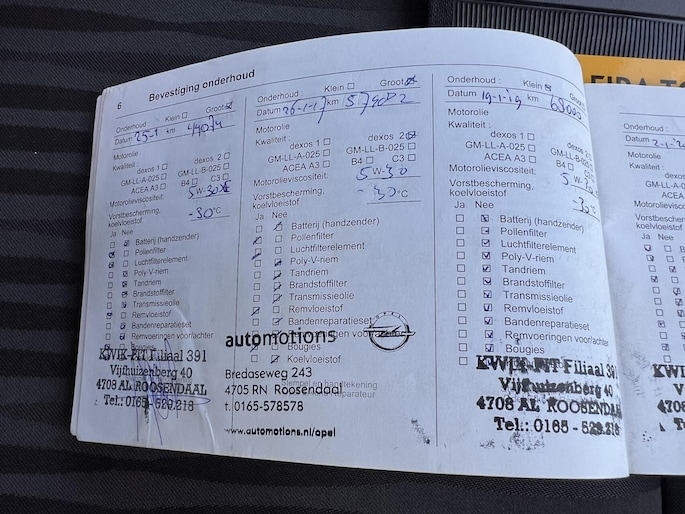 6 Bevestiging onderhoud
Onderhoud : Klein Groot
Datum 25-1 km 44074
Motorolie
Kwaliteit : dexos 1 dexos 2
GM-LL-A-025 GM-LL-B-025
ACEA A3 B4 C3
Motorolieviscositeit: 5 W-30
Vorstbescherming,
koelvloeistof -30°C
Ja Nee
Batterij (handzender)
Pollenfilter
Luchtfilterelement
Poly-V-riem
Tandriem
Brandstoffilter
Transmissieolie
Remvloeistof
Bandenreparatieset
Remvoeringen voor/achter
Bougies
KWIK-FIT Filiaal 391
Vijfhuizenberg 40
4708 AL ROOSENDAAL
Tel.: 0165 - 529.218
Onderhoud : Klein Groot
Datum 26-1-17 km
Motorolie
Kwaliteit : dexos 1 dexos 2
GM-LL-A-025 GM-LL-B-025
ACEA A3 B4 C3
Motorolieviscositeit: 5 W-30
Vorstbescherming,
koelvloeistof -30°C
Ja Nee
Batterij (handzender)
Pollenfilter
Luchtfilterelement
Poly-V-riem
Tandriem
Brandstoffilter
Transmissieolie
Remvloeistof
Bandenreparatieset
Bougies
Koelvloeistof
automotions
Bredaseweg 243
Stempel en handtekening
4705 RN Roosendaal
t. 0165-578578
www.automotions.nl/opel
Onderhoud : Klein
Datum 19-1-19 km
Motorolie
Kwaliteit : dexos 1
GM-LL-A-025
ACEA A3 B4
Motorolieviscositeit: 5 W-30
Vorstbescherming,
koelvloeistof -30°C
Ja Nee
Batterij (handzender)
Pollenfilter
Luchtfilterelement
Poly-V-riem
Tandriem
Brandstoffilter
Transmissieolie
Remvloeistof
Bandenreparatieset
Remvoeringen voor/achter
Bougies
KWIK-FIT Filiaal 391
Vijfhuizenberg 40
4708 AL ROOSENDAAL
Tel.: 0165 - 529.218
Onderhoud :
Datum
Motorolie
Kwaliteit :
Motorolieviscositeit
Vorstbescherming,
koelvloeistof
Ja Nee